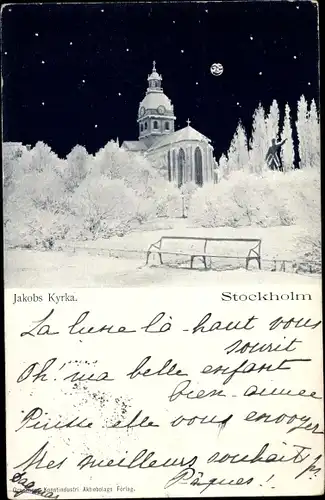 Jakobs Kyrka. Stockholm
La lune là-haut vous
sourit
Oh! ma belle enfant
bien-aimee
Puisse elle vous envoyer
Mes meilleurs souhaits pr
Pâques!
Konstindustri Aktiebolags Förlag.